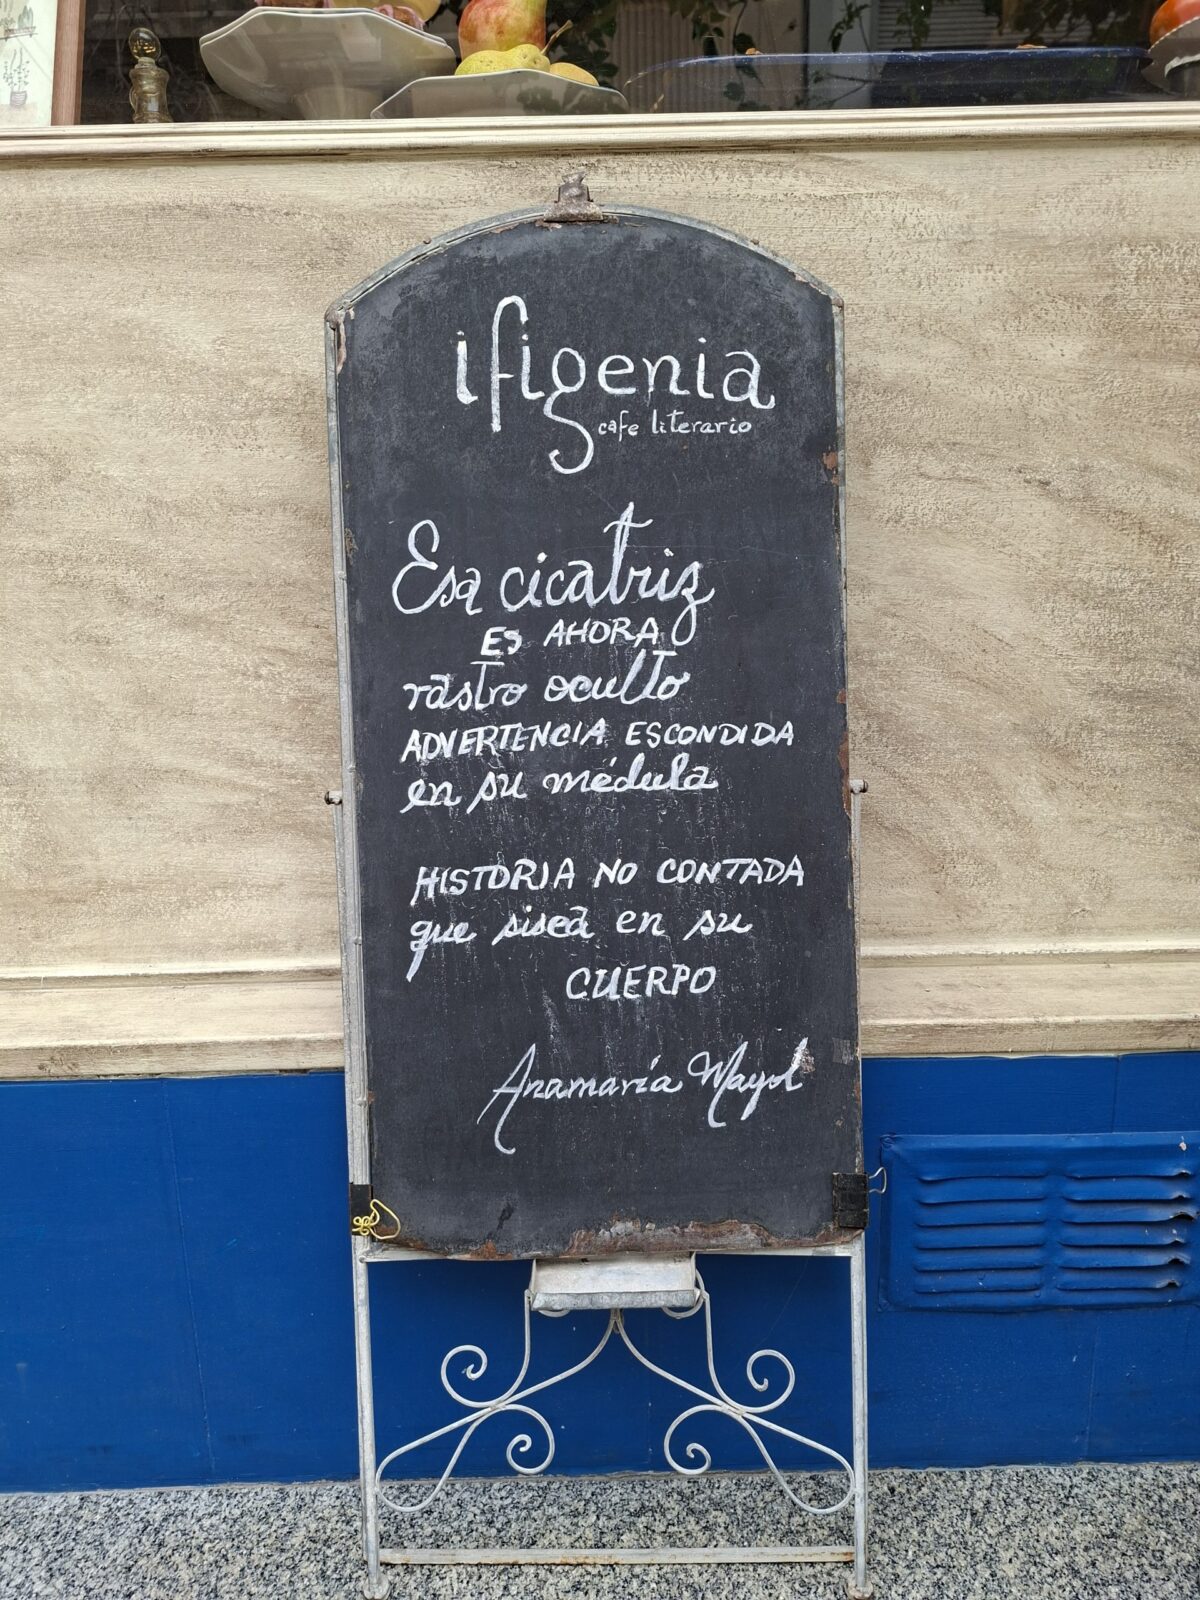 ifigenia
cafe literario
Esa cicatriz
ES AHORA
rastro oculto
ADVERTENCIA ESCONDIDA
en su médula
HISTORIA NO CONTADA
que sisea en su
CUERPO
Anamaría Mayol